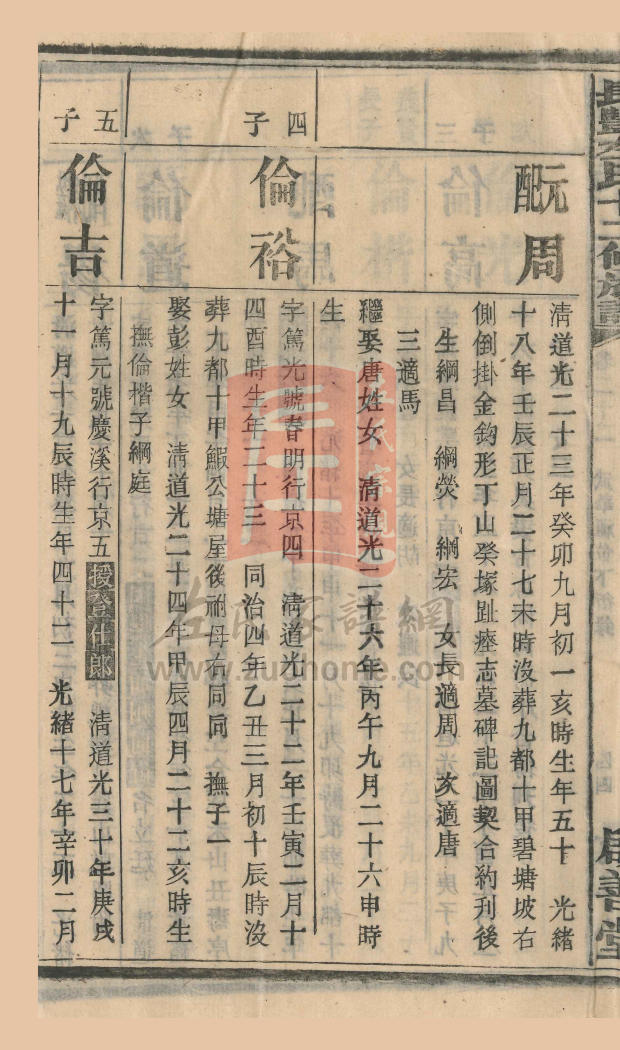 元配周
清道光二十三年癸卯九月初一亥時生年五十 光緒
十八年壬辰正月二十七未時沒葬九都十甲碧塘坡右
側倒掛金鈎形丁山癸塚趾痙志墓碑記圖契合約刊後
生綱昌 綱熒 綱宏 女長適周 次適唐
三適馬
繼娶唐姓女 清道光二十六年丙午九月二十六申時
生
四子
倫裕
字篤光號春明行京四 清道光二十二年壬寅二月十
四酉時生年二十三 同治四年乙丑三月初十辰時沒
葬九都十甲鰕公塘屋後祔母右同同 撫子一
娶彭姓女 清道光二十四年甲辰四月二十二亥時生
撫倫楷子綱庭
五子
倫吉
字篤元號慶溪行京五授登仕郎 清道光三十年庚戌
十一月十九辰時生年四十二 光緒十七年辛卯二月
啟善堂
www.zuohome.com